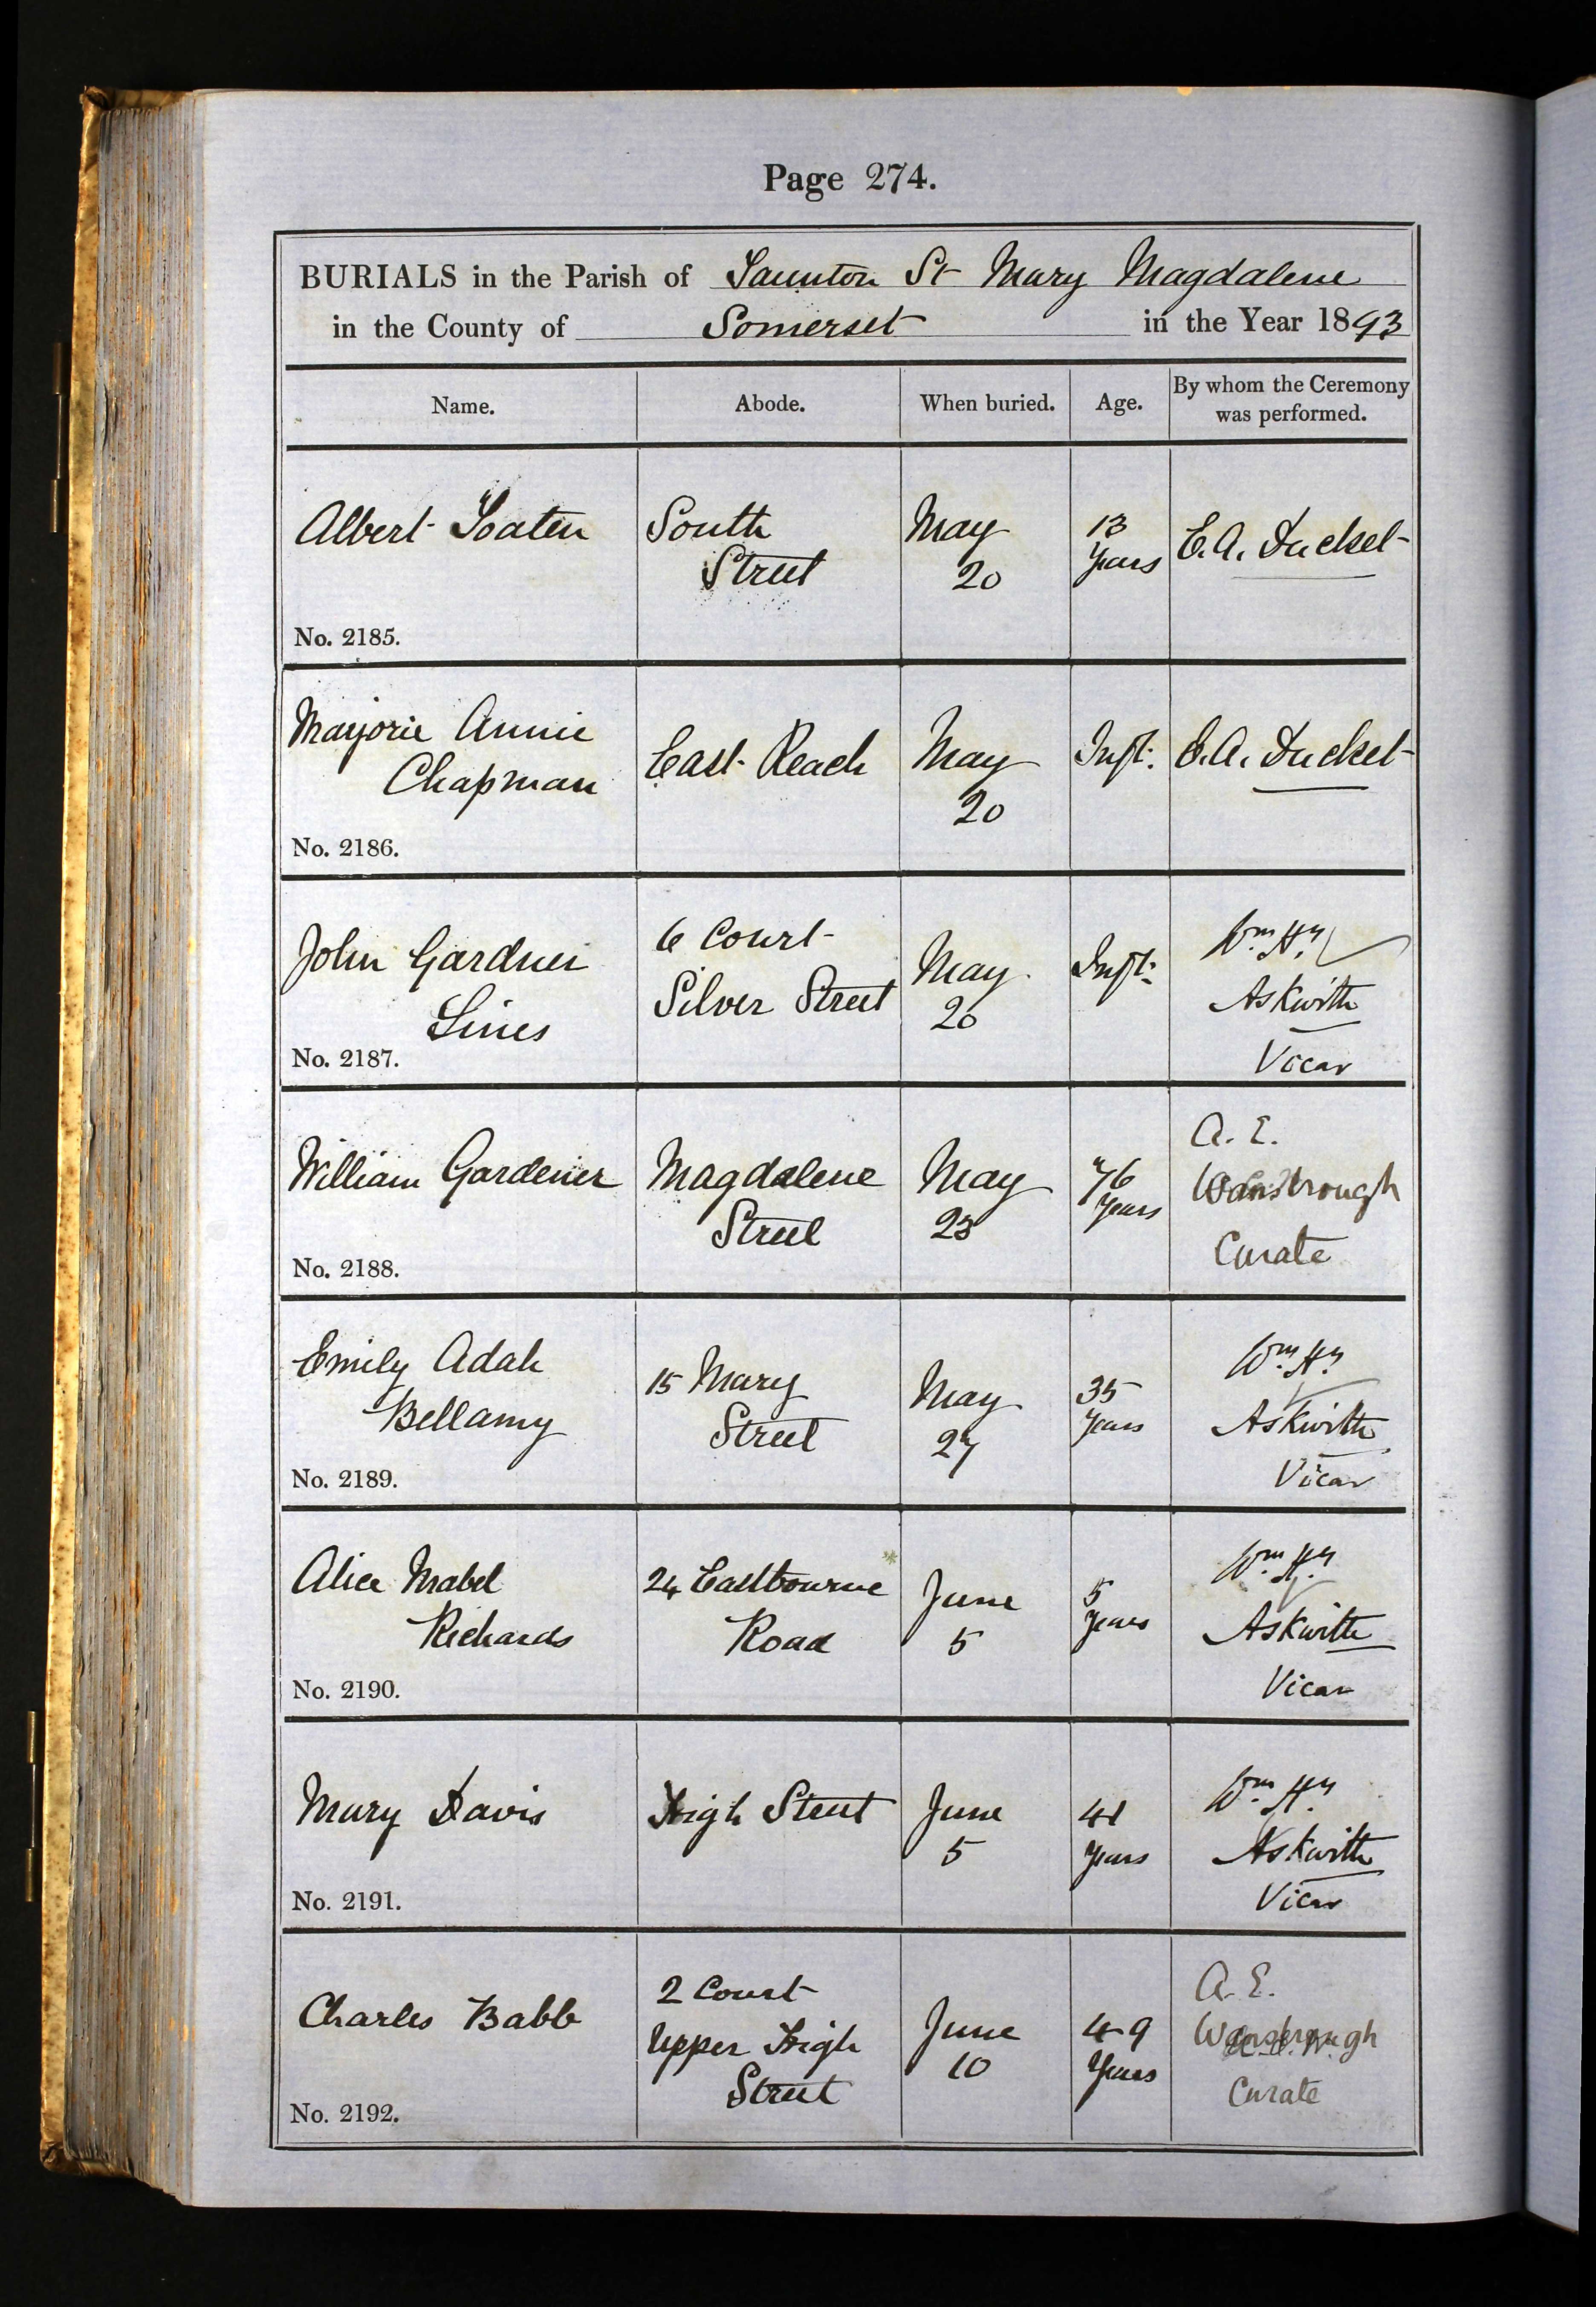 Page 274.
BURIALS in the Parish of Taunton St Mary Magdalene
in the County of Somerset in the Year 1893
Name. Abode. When buried. Age. By whom the Ceremony was performed.
Albert Toaten
South
Street
May
20
13
Years
E. A. Ducket
No. 2185.
Marjorie Annie
Chapman
East Reach
May
20
Inft:
E. A. Ducket
No. 2186.
John Gardner
Lines
6 Court
Silver Street
May
20
Inft:
Wm. Hy.
Askwith
Vicar
No. 2187.
William Gardener
Magdalene
Street
May
23
76
Years
A. E.
Wansbrough
Curate
No. 2188.
Emily Adah
Bellamy
15 Mary
Street
May
27
35
Years
Wm. Hy.
Askwith
Vicar
No. 2189.
Alice Mabel
Richards
24 Eastbourne
Road
June
5
5
Years
Wm. Hy.
Askwith
Vicar
No. 2190.
Mary Davis
High Street
June
5
41
Years
Wm. Hy.
Askwith
Vicar
No. 2191.
Charles Babb
2 Court
Upper High
Street
June
10
49
Years
A. E.
Wansbrough
Curate
No. 2192.